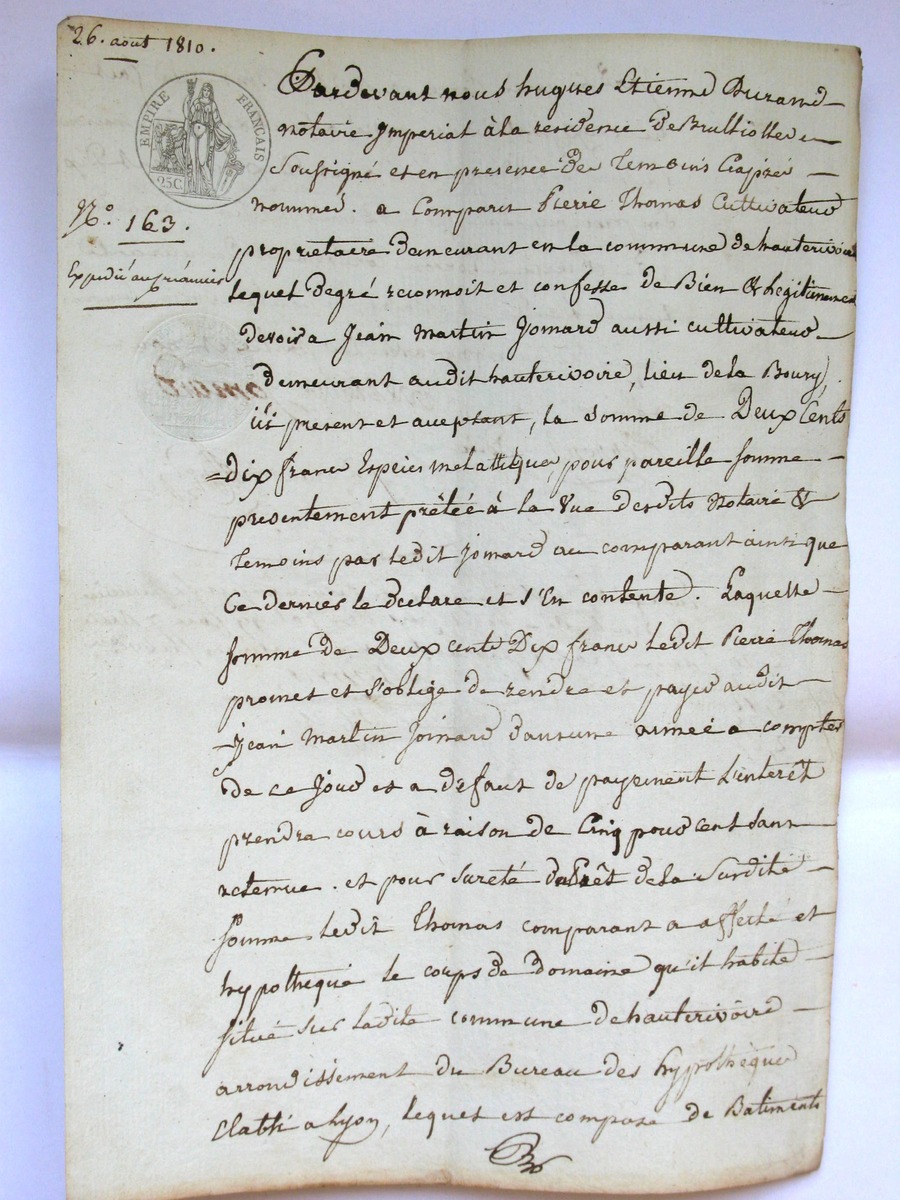 26. aout 1810.
EMPIRE FRANÇAIS
25C.
N.º 163.
Expedié au créancier
Pardevant nous hugues Etienne Durand
notaire Imperial à la residence de Brulliolles
Soussigné et en presence des temoins Ciaprés
nommés. a Comparu Pierre Thomas Cultivateur
propriétaire demeurant en la commune de hauterivoire
lequel degré reconnoit et confesse de Bien & Legitimement
devoir a Jean Martin Jomard aussi cultivateur
demeurant audit hauterivoire, lieu de la Boury,
ici present et aceptant, la somme de Deux Cents
=dix francs Especes metallique, pour pareille somme
presentement prêtée à la Vue desdits Notaire &
temoins par ledit Jomard au comparant ainsi que
Ce dernier le déclare et s'En contente. Laquelle
somme de Deux cents Dix francs ledit Pierre Thomas
promet et s'oblige de rendre et payer audit
Jean Martin Jomard dans une année a compter
de ce Jour et a défaut de payement L'interêt
prendra cours à raison de Cinq pour cent sans
retenue. et pour sureté de la Susdite
somme ledit Thomas comparant a affecté et
hypothequé le corps de Domaine qu'il habite
situé sur ladite commune de hauterivoire
arrondissement du Bureau des hypothèques
Etabli a Lyon, lequel est composé de Batiments